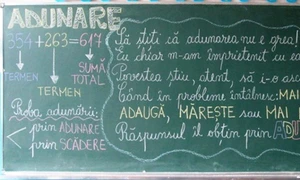 ADUNARE
354+263=617
TERMEN
TERMEN
SUMĂ
TOTAL
Proba adunării:
prin ADUNARE
prin SCĂDERE
Să știți că adunarea nu e grea!
Eu chiar m-am împrietenit cu ea
Povestea știu, atent, să i-o as
Când în probleme întâlnesc: MAI
ADAUGĂ, MĂREȘTE sau MAI
Răspunsul îl obțin prin ADU